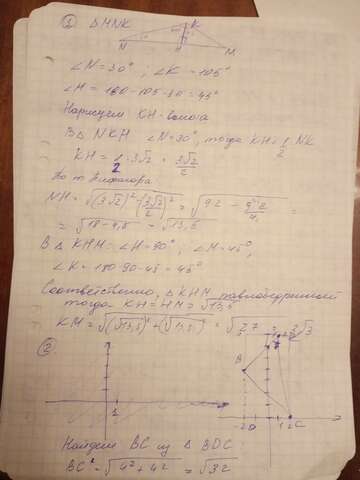 ① Δ MNK
K
N H M
∠N=30° ; ∠K=105°
∠M=180-105-30=45°
Нарисуем KH-высота
В Δ NKH ∠N=30°, тогда KH=1/2 NK
KH = 1/2 · 3√2 = 3√2/2
По т. Пифагора
NH = √((3√2)² - (3√2/2)²) = √(9·2 - 9·2/4) =
= √(18-4,5) = √13,5
В Δ KHM = ∠H=90° ; ∠M=45°,
∠K=180-90-45=45°
Соответственно, Δ KHM равнобедренный
тогда KH=HM=√13,5
KM = √((√13,5)² + (√13,5)²) = √27
②
B
-2 D 1 2 C
1
Найдем BC из Δ BDC
BC² = √(4²+4²) = √32